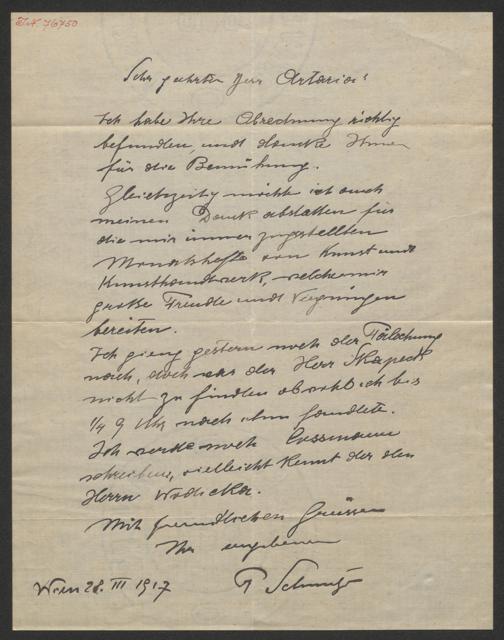 I.N. 76750
Sehr geehrter Herr Artaria!
Ich habe Ihre Abrechnung richtig
befunden, und danke Ihnen
für die Bemühung.
Gleichzeitig möchte ich auch
meinen Dank abstatten für
die mir immer zugestellten
Monatshefte von Kunst und
Kunsthandwerk, welche mir
große Freude und Vergnügen
bereiten.
Ich gieng gestern noch der
nach, doch war der Herr
nicht zu finden obwohl ich bis
1/4 9 Uhr nach ihm fandete.
Ich werde noch
schreiben, vielleicht kennt der den
Herrn
Mit freundlichen Grüssen
Ihr ergebener
Wien 28. III 1917